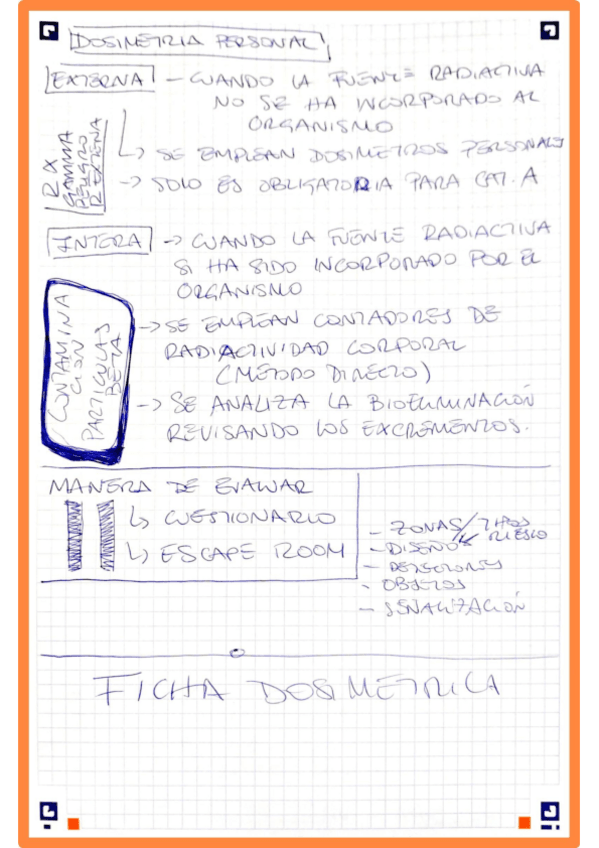 DOSIMETRIA PERSONAL
EXTERNA - CUANDO LA FUENTE RADIACTIVA
NO SE HA INCORPORADO AL
ORGANISMO
RX
GAMMA
PELIGRO
R EXTERNA
↳ SE EMPLEAN DOSIMETROS PERSONALES
-> SOLO ES OBLIGATORIA PARA CAT. A
INTERA -> CUANDO LA FUENTE RADIACTIVA
SI HA SIDO INCORPORADO POR EL
ORGANISMO
CONTAMINA
CION
PARTICULAS
BETA
-> SE EMPLEAN CONTADORES DE
RADIACTIVIDAD CORPORAL
(METODO DIRECTO)
-> SE ANALIZA LA BIOELIMINACIÓN
REVISANDO LOS EXCREMENTOS.
MANERA DE EVALUAR
↳ CUESTIONARIO
↳ ESCAPE ROOM
- ZONAS / TIPOS
RIESGO
- DISEÑO
- DETECTORES
- OBJETOS
- SEÑALIZACIÓN
FICHA DOSIMETRICA